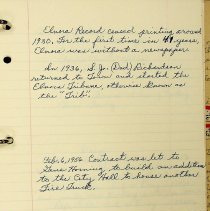 Elmora Record ceased printing around
1930. For the first time in 41 years,
Elmora was without a newspaper
In 1936, S. Jo. (Dad) Richardson
returned to Town and started the
Elmora Tribune, otherwise known as
the "Trib".
Feb. 6, 1956 Contract was let to
Gene Horning to build an addition
to the City Hall to house another
Fire Truck.